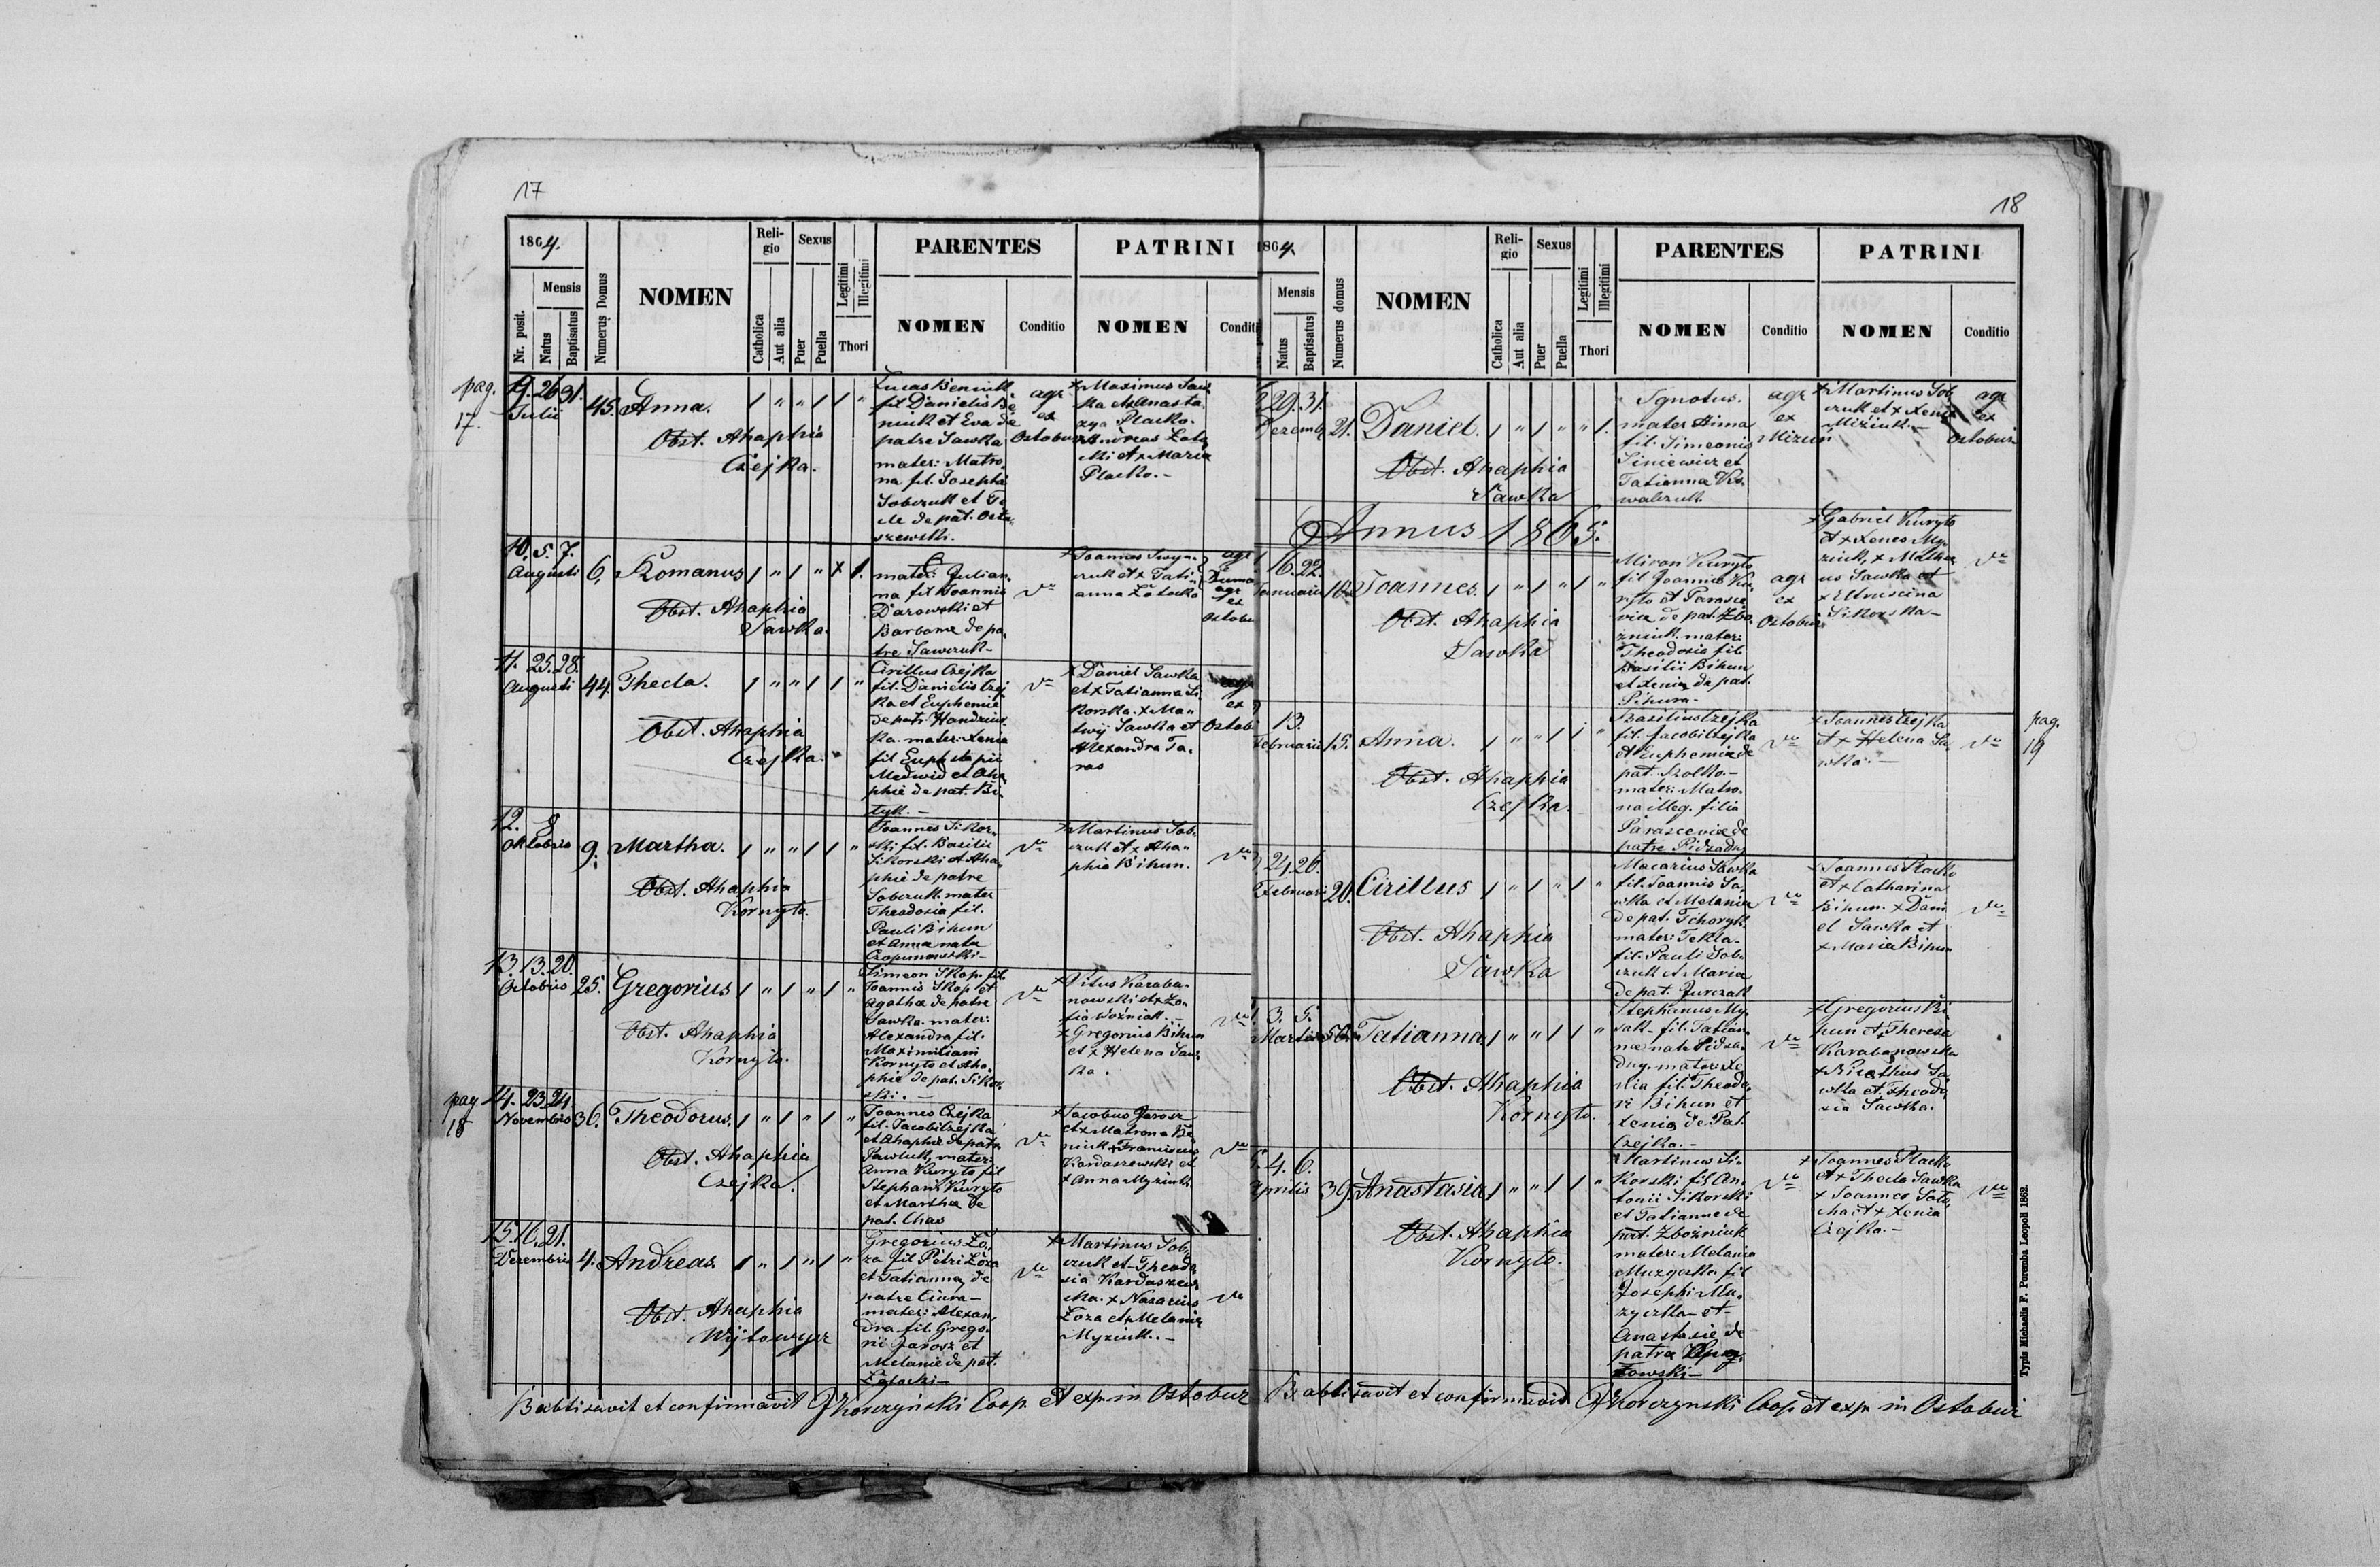 17
1864.
Nr. posit.
Mensis
Natus
Baptisatus
Numerus Domus
NOMEN
Reli-
gio
Catholica
Aut alia
Sexus
Puer
Puella
Legitimi
Illegitimi
Thori
PARENTES
NOMEN
Conditio
PATRINI
NOMEN
Conditi
pag.
17.
9. 26 31.
Julii
45. Anna.
Obst. Ahaphia
Czejka.
Lucas Beniuk
fil Danielis Be
niuk et Eva de
patre Sawka
mater: Matro,
na fil. Josephi
Sobczuk et Te
cle de pat. Osta,
szewski.
agr
ex
Ostobuz
+ Maximus Saw
ka et Anasta
zya Placko.
+ Andreas Zato
cki et + Maria
Placko. -
10. 5. 7.
Augusti
6. Romanus
Obst. Ahaphia
Sawka.
mater: Julian,
na fil Joannis
Darowski et
Barbara de pa,
tre Sawczuk -
+ Joannes
czuk et + Tati
anna Zatocka
agr
ex
Ostobu
11. 25. 28.
Augusti
44. Thecla.
Obst. Ahaphia
Czejka.
Cirillus Czejka
fil. Danielis Czej
ka et Euphemie
de patr. Handziuk
ka. mater: Xenia
fil
Medwid et Aha
phie de pat. Bi
tyk. -
+ Daniel Sawka
et + Tatianna Si
korska. + Ma
twij Sawka et
Alexandra Ta,
ras
ex
Ostobu
12. 8
Oktobris
9. Martha.
Obst. Ahaphia
Kornyto.
Joannes Sikor,
ski fil. Basilii
Sikorski et Aha,
phie de patre
Sobczuk. mater
Theodosia fil.
Pauli Bihun
et Anna nata
+ Martinus Sob,
czuk et + Aha,
phia Bihun.
13. 13. 20.
Octobris
25. Gregorius
Obst. Ahaphia
Kornyto.
Simeon Skop. fil.
Joannis Skop et
Agatha de patre
Sawka. mater:
Alexandra fil.
Maximiliani
Kornyto et Aha,
phie de pat. Sikor,
ski. -
+ Vitus Karaba,
nowski et + Zo,
fia Wozniak. -
+ Gregorius Bihun
et + Helena Saw
ka.
pag
18
14. 23. 24
Novembris
36. Theodorus.
Obst. Ahaphia
Czejka.
Joannes Czejka
fil. Jacobi Czejka
et Ahaphie de patre
Pawluk, mater:
Anna Kuryto fil
Stephani Kuryto
et Martha de
pat. Chas
+ Jacobus Jarosz
et + Matrona Be,
niuk + Franciscus
Kardaszewski et
+ Anna Myziuk.
15. 16. 21.
Dezembris
4. Andreas.
Obst. Ahaphia
Gregorius Lo,
za fil Petri Loza
et Tatianna de
patre Ciura -
mater: Alexan,
dra fil. Grego,
rii Jarosz et
Melanie de pat.
Zatocki -
+ Martinus Sob,
czuk et Theodo
sia Kardaszew
ska. + Nazarius
Loza et Melania
Myziuk. -
Babtisavit et confirmavit JKorczyński Coop. et exp. in Ostobuz
18
1864.
Mensis
Natus
Baptisatus
Numerus domus
NOMEN
Reli-
gio
Catholica
Aut alia
Sexus
Puer
Puella
Legitimi
Illegitimi
Thori
PARENTES
NOMEN
Conditio
PATRINI
NOMEN
Conditio
29. 31.
Dezemb
21. Daniel.
Obst. Ahaphia
Sawka
Ignotus.
mater Anna
fil. Simeonis
Siniewicz et
Tatianna Ko,
walczuk.
agr
ex
+ Martinus Sob
czuk et + Xenia
Miziuk. -
agr
ex
Ostobuz
Annus 1865.
16. 22.
Januarii
10. Joannes.
Obst. Ahaphia
Sawka
Miron Kuryto
fil Joannis Ku,
ryto et Parasce
viae de pat. Zbo,
zniuk. mater:
Theodosia fil
Basilii Bihun
et Xenia de pat.
agr
ex
Ostobuz
+ Gabriel Kuryto
et + Xenes My,
ziuk, + Mathe
us Sawka et
+
Sikorska -
13.
Februarii
15. Anna.
Obst. Ahaphia
Czejka.
Basilius Czejka
fil. Jacobi Czejka
et Euphemia de
pat. Szolko. -
mater: Matro,
na illeg. filia
Parascevia de
patre Pidzadny
+ Joannes Czejka
et + Helena Sa,
wka. -
pag.
19
24. 26.
Februari
20. Cirillus
Obst. Ahaphia
Sawka
Macarius Sawka
fil. Joannis Sa,
wka et Melania
de pat. Tchoryk
mater: Tekla -
fil. Pauli Sob,
czuk et Maria
de pat. Jurczak
+ Joannes Placko
et + Catharina
Bihun. + Dani
el Sawka et
+ Maria Bihun
3. 5.
Martii
50. Tatianna
Obst. Ahaphia
Kornyto.
Stephanus My,
sak - fil. Tatian,
nae nat. Pidza,
dny. mater: Xe,
nia fil. Theodo,
ri Bihun et
Xenia de Pat.
Czejka. -
+ Gregorius Bi
hun et + Theresa
Karabanowska
+ Sa
wka et + Theodo
sia Sawka.
5. 4. 6.
Aprilis
39. Anastasia
Obst. Ahaphia
Kornyto.
Martinus Si,
korski fil An,
tonii Sikorski
et Tatianna de
pat. Zbozniuk
mater: Melania
Muzyczka fil
Josephi Mu,
zyczka - et -
Anastasie de
patre
+ Joannes Placko
et + Thecla Sawka
+ Joannes Zato,
cha et + Xenia
Czejka. -
Babtisavit et confirmavit JKorczynski Coop et exp. in Ostobuz
Typis Michaelis F. Poremba Leopoli 1862.